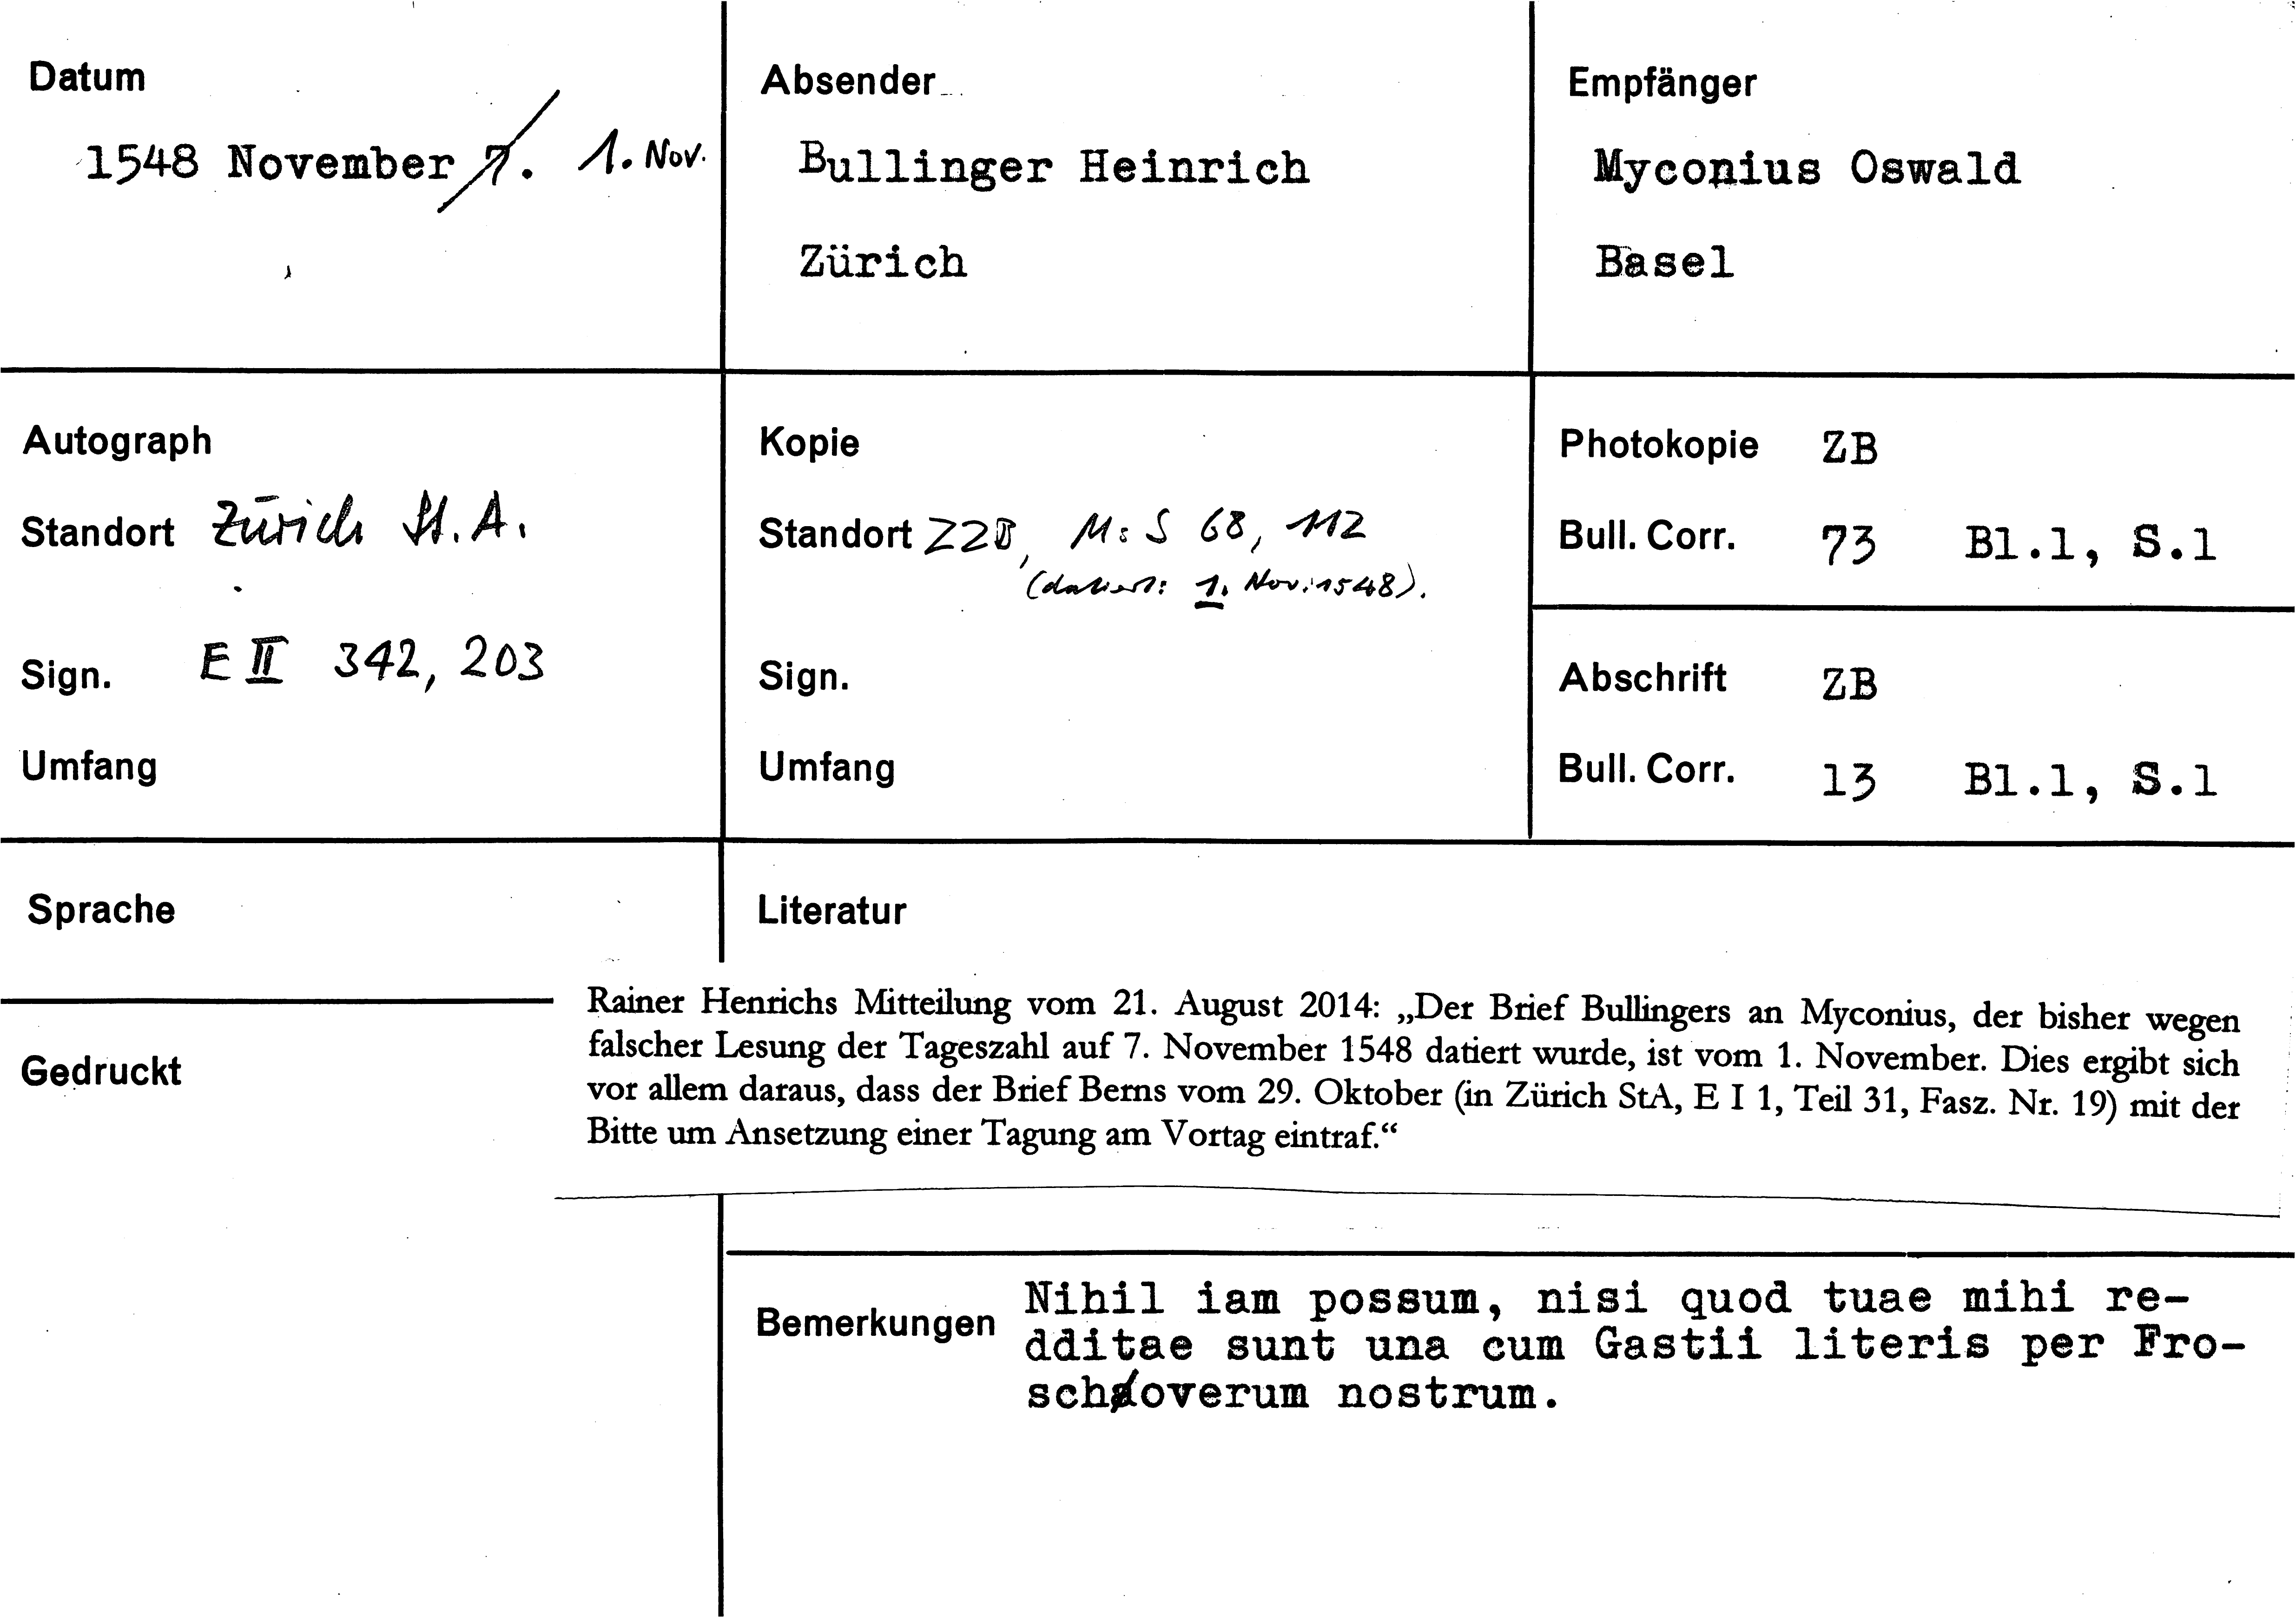 Datum
1548 November 7. 1. Nov.
Absender
Bullinger Heinrich
Zürich
Empfänger
Myconius Oswald
Basel
Autograph
Standort Zürich St.A.
Sign. E II 342, 203
Umfang
Kopie
Standort ZZB, Ms S 68, 112
(datiert: 1. Nov. 1548).
Sign.
Umfang
Photokopie ZB
Bull. Corr. 73 Bl.1, S.1
Abschrift ZB
Bull. Corr. 13 Bl.1, S.1
Sprache
Literatur
Rainer Henrichs Mitteilung vom 21. August 2014: „Der Brief Bullingers an Myconius, der bisher wegen
falscher Lesung der Tageszahl auf 7. November 1548 datiert wurde, ist vom 1. November. Dies ergibt sich
vor allem daraus, dass der Brief Berns vom 29. Oktober (in Zürich StA, E I 1, Teil 31, Fasz. Nr. 19) mit der
Bitte um Ansetzung einer Tagung am Vortag eintraf.“
Gedruckt
Bemerkungen
Nihil iam possum, nisi quod tuae mihi re-
dditae sunt una cum Gastii literis per Fro-
schoverum nostrum.